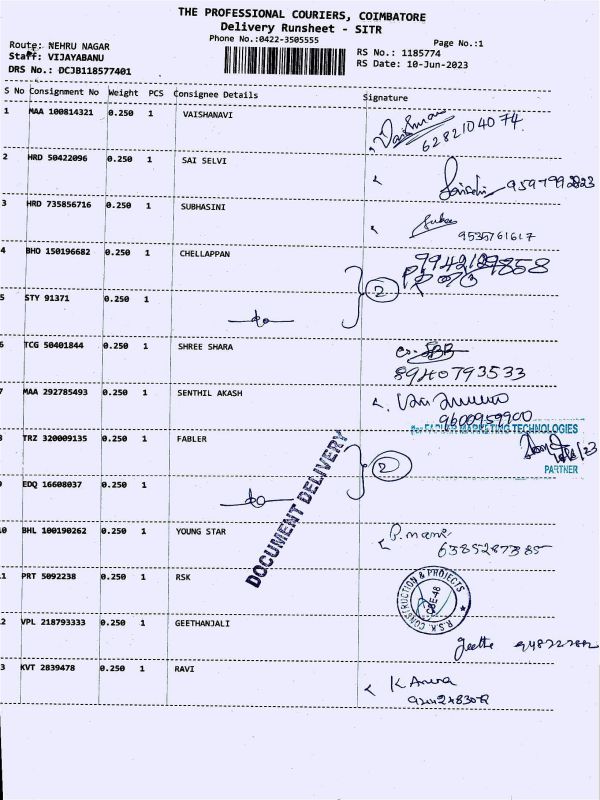 THE PROFESSIONAL COURIERS, COIMBATORE
Delivery Runsheet - SITR
Phone No.:0422-3505555
Page No.:1
Route: NEHRU NAGAR
RS No.: 1185774
Staff: VIJAYABANU
RS Date: 10-Jun-2023
DRS No.: DCJB118577401
S No Consignment No Weight PCS Consignee Details Signature
1 MAA 100814321 0.250 1 VAISHANAVI
6282104074
2 HRD 50422096 0.250 1 SAI SELVI
9597992823
3 HRD 735856716 0.250 1 SUBHASINI
9535761617
4 BHO 150196682 0.250 1 CHELLAPPAN
2
5 STY 91371 0.250 1
do
6 TCG 50401844 0.250 1 SHREE SHARA
8940793533
7 MAA 292785493 0.250 1 SENTHIL AKASH
9600959900
for FABLER MARKETING TECHNOLOGIES
8 TRZ 320009135 0.250 1 FABLER
PARTNER
2
9 EDQ 16608037 0.250 1
do
DOCUMENT DELIVERY
10 BHL 100190262 0.250 1 YOUNG STAR
P. mani
6385287385
11 PRT 5092238 0.250 1 RSK
R.S.K. CONSTRUCTION & PROJECTS
CBE-48
12 VPL 218793333 0.250 1 GEETHANJALI
geetha
13 KVT 2839478 0.250 1 RAVI
K Aruna